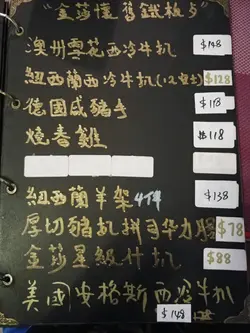 “金莎懷舊鐵板”
澳州雪花西冷牛扒 $148
紐西蘭西冷牛扒(12安士) $128
德國咸豬手 $118
燒春雞 $118
紐西蘭羊架4件 $138
厚切豬扒拼司华力腸 $78
金莎星級什扒 $88
美國安格斯西冷牛扒
$148